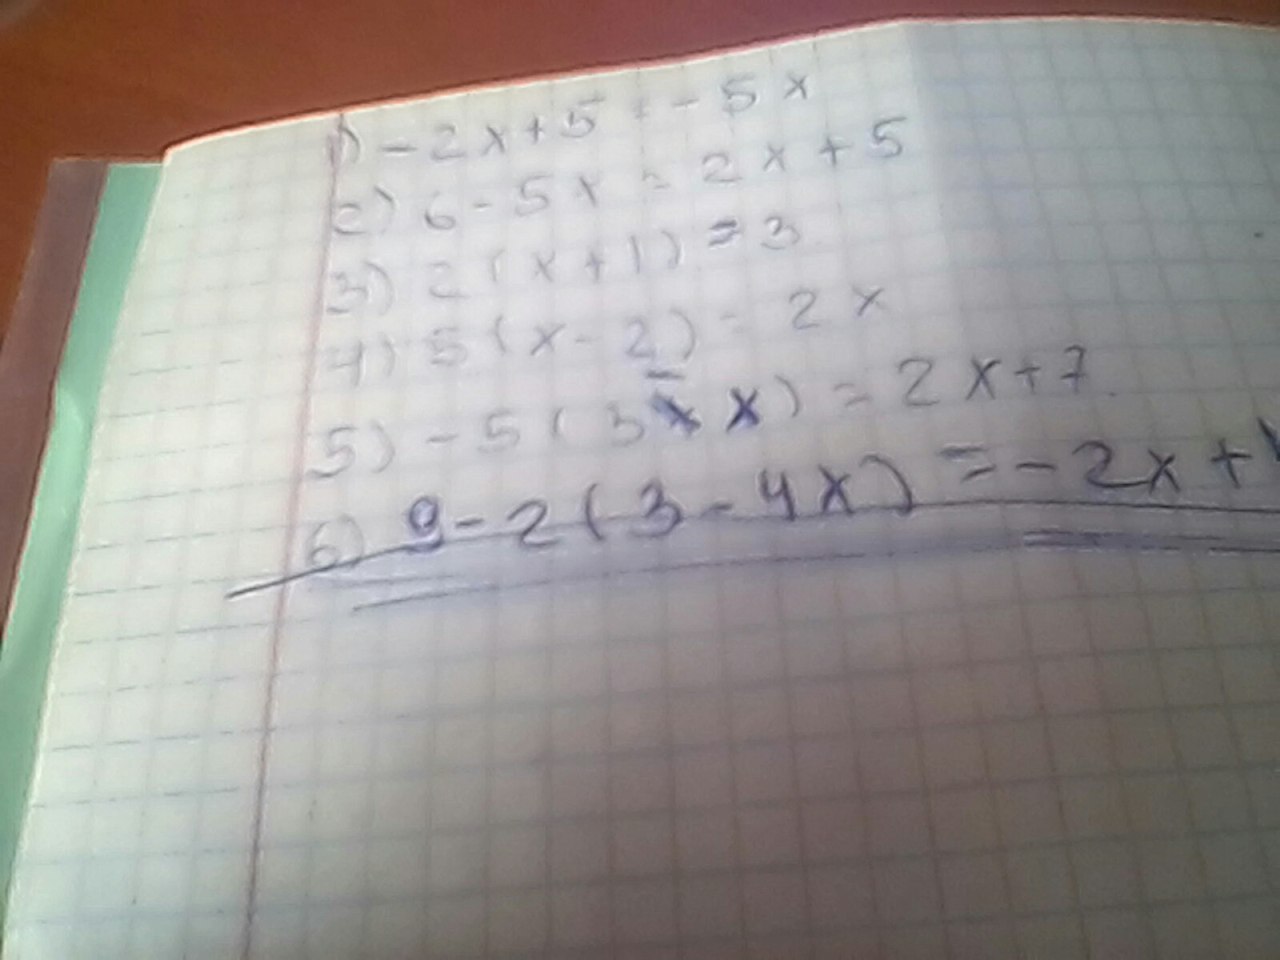 1) -2x+5 = -5x
2) 6-5x = 2x+5
3) 2(x+1) = 3
4) 5(x-2) = 2x
5) -5(3-x) = 2x+7
6) 9-2(3-4x) = -2x+